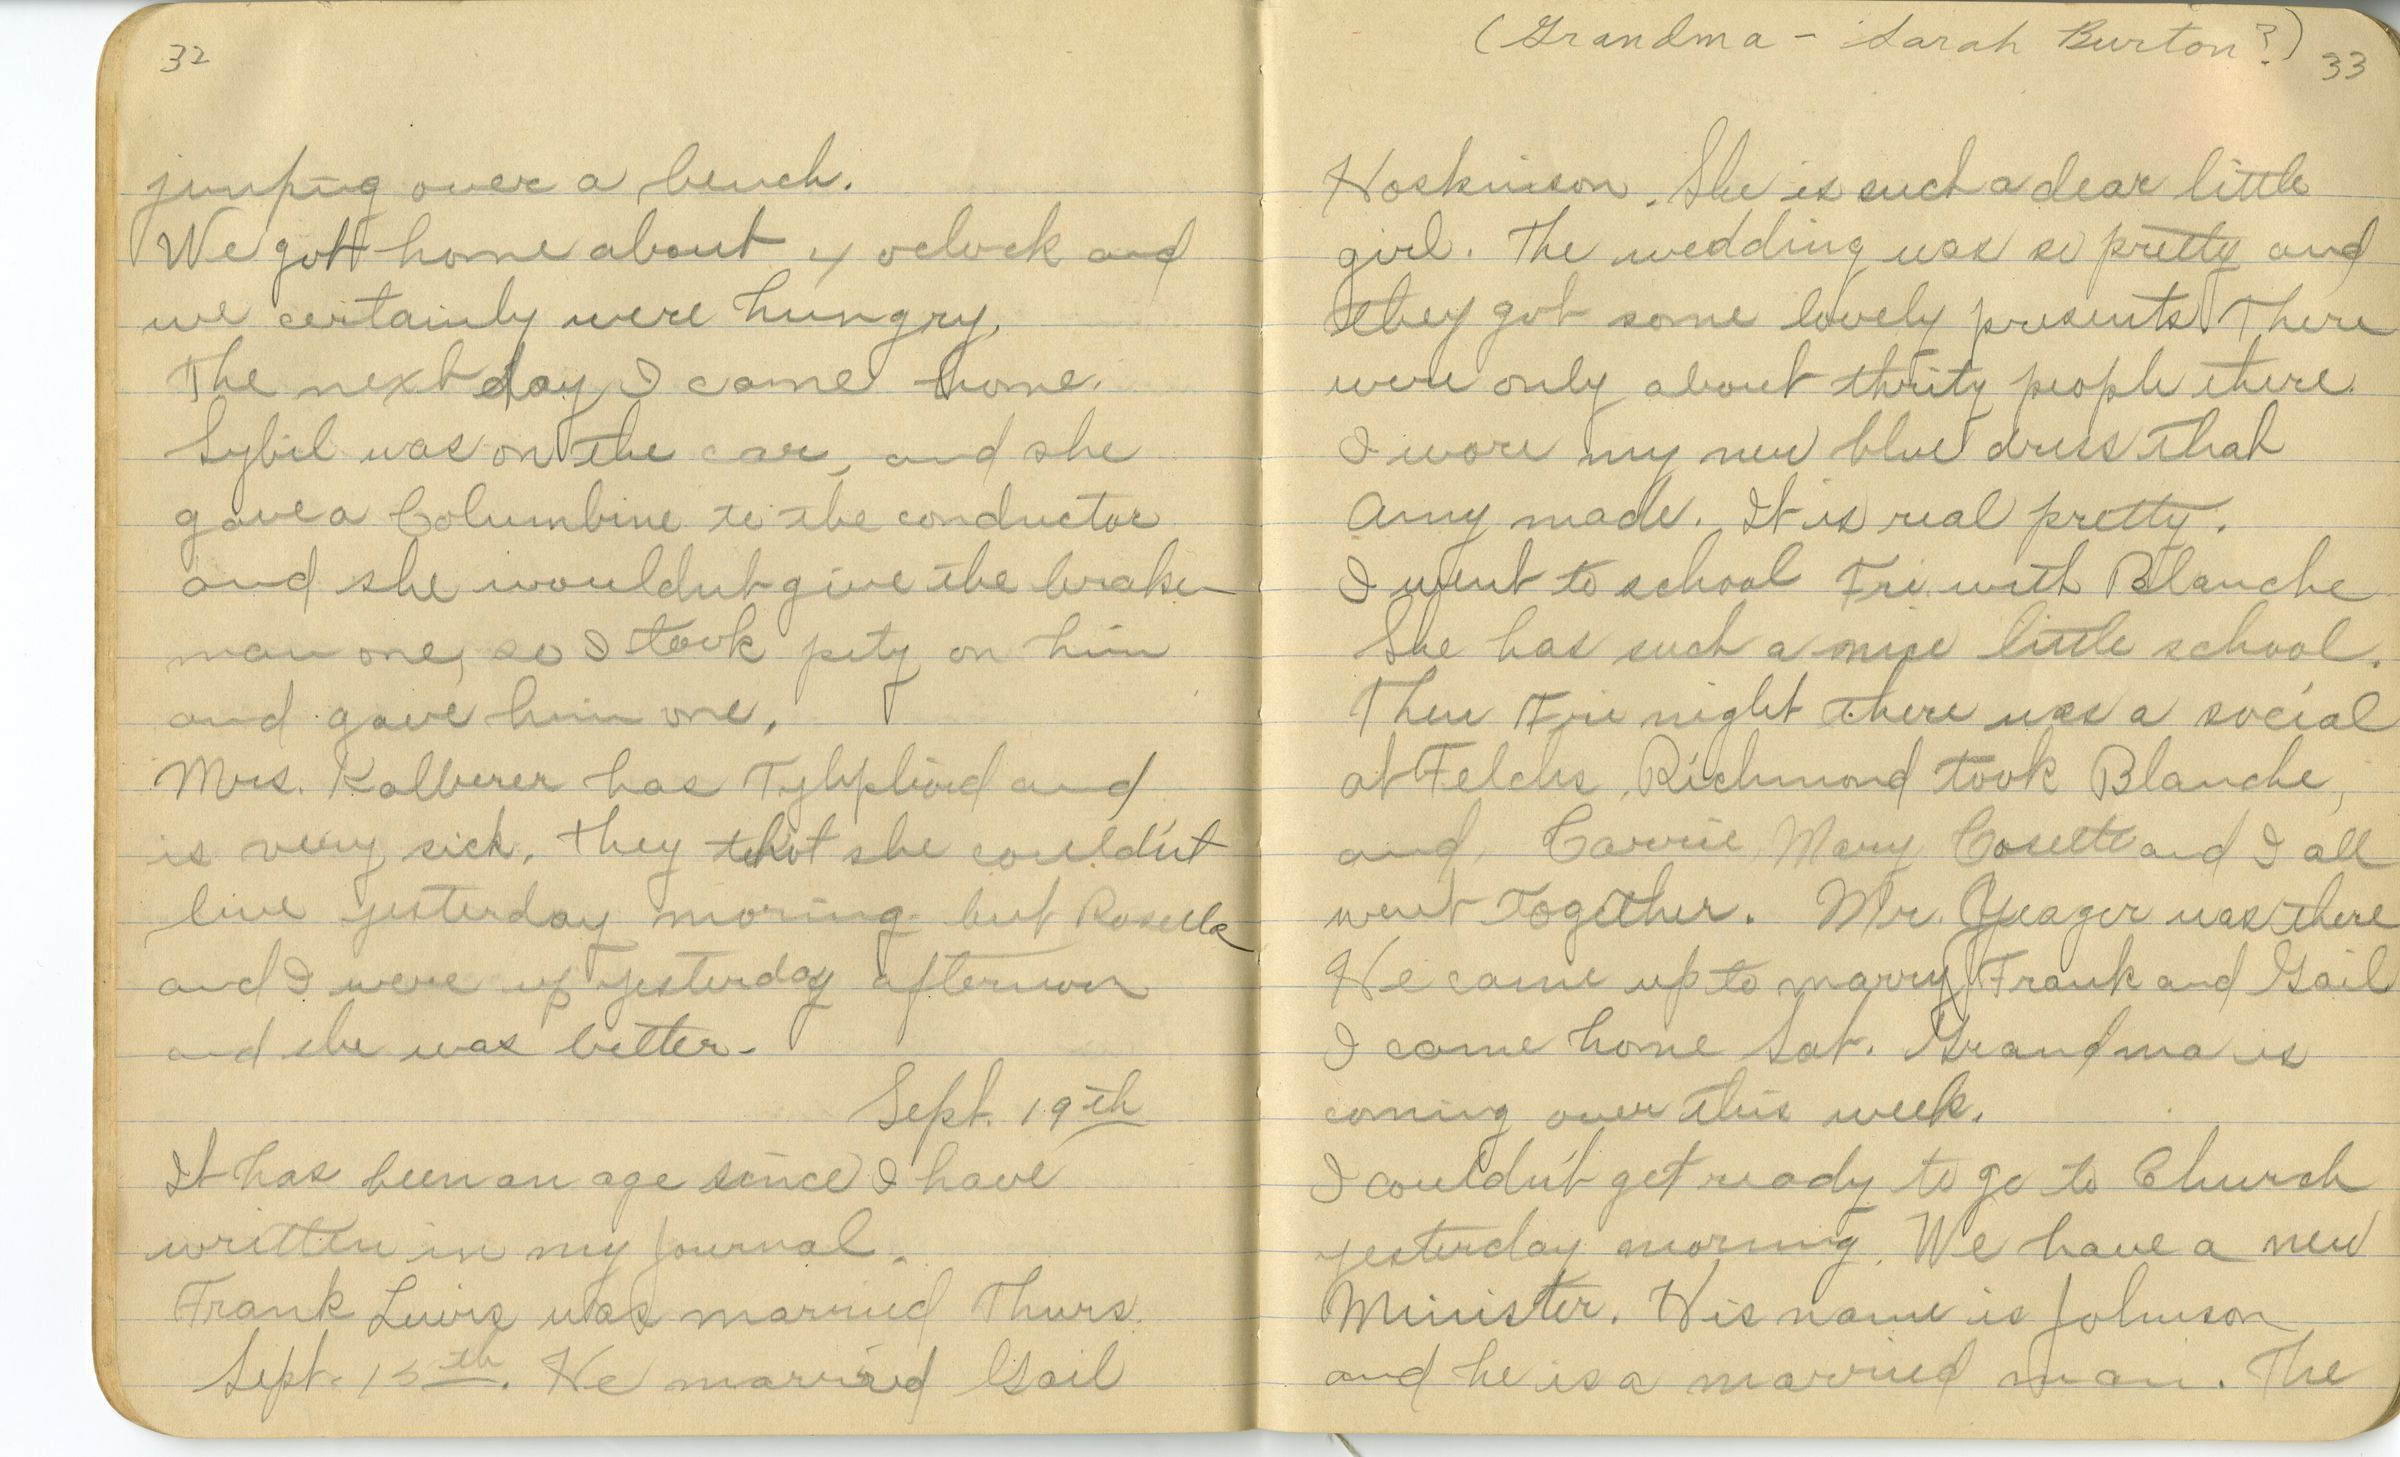 32
jumping over a bench.
We gott home about 4 oclock and
we certainly were hungry.
The next day I came home.
Sybil was on the car, and she
gave a Columbine to the conductor
and she wouldn't give the brake-
man one, so I took pity on him
and gave him one.
Mrs. Kalberer has Tyhphoid and
is very sick. They thot she could'nt
live yesterday moring but Rosella
and I were up yesterday afternoon
and she was better.
Sept. 19th
It has been an age since I have
written in my journal.
Frank Lewis was married Thurs.
Sept. 15th. He married Gail
(Grandma - Sarah Burton?)
33
Hoskinson. She is such a dear little
girl. The wedding was so pretty and
they got some lovely presents. There
were only about thrity people there.
I wore my new blue dress that
Amy made. It is real pretty.
I went to school Fri. with Blanche
She has such a nice little school.
Then Fri night there was a social
at Felchs. Richmond took Blanche,
and, Carrie, Mary, Cosette and I all
went together. Mr. Yeager was there
He came up to marry Frank and Gail
I came home Sat. Grandma is
coming over this week.
I could'nt get ready to go to Church
yesterday morning. We have a new
Minister. His name is Johnson
and he is a married man. The